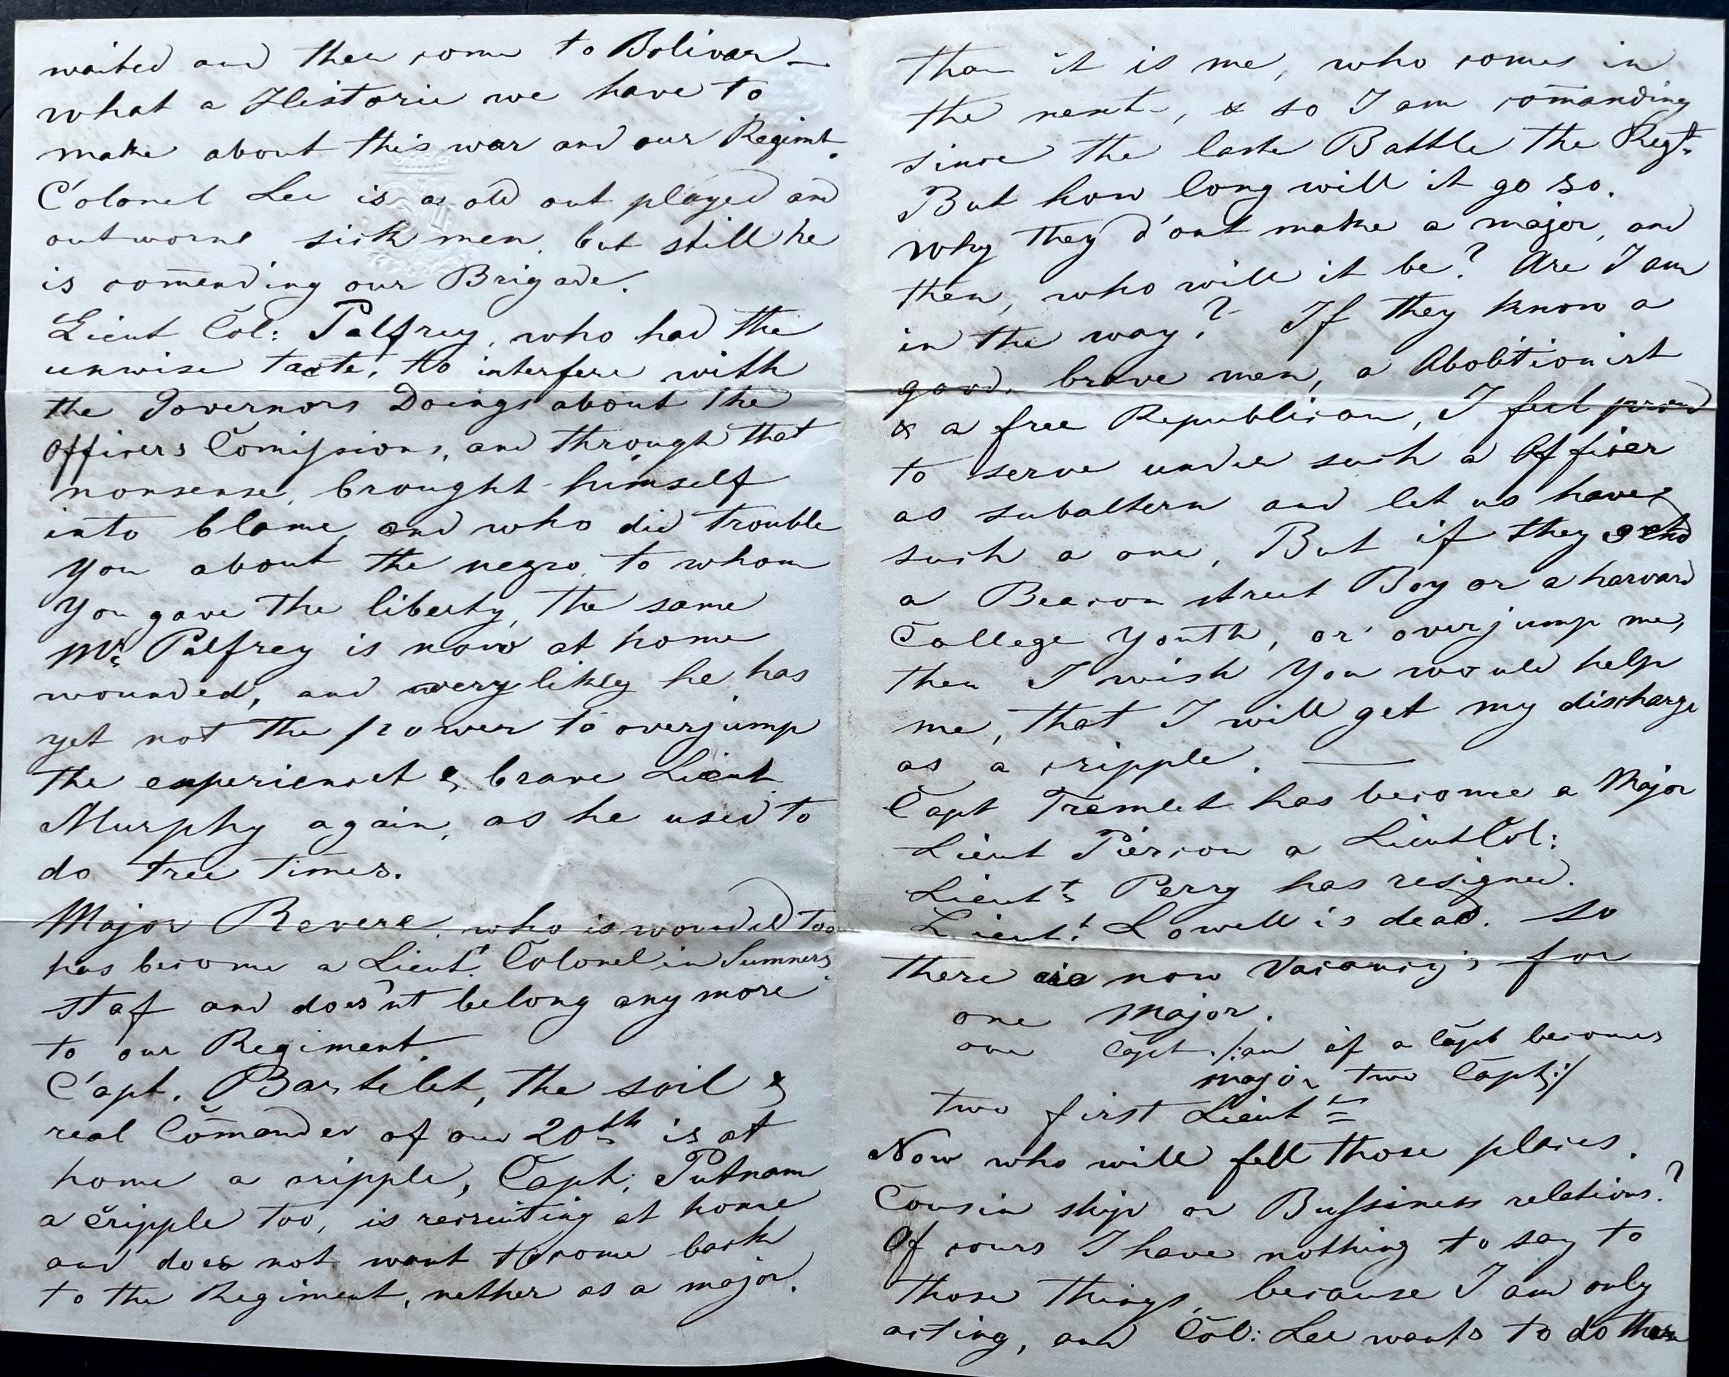 waited and then come to Bolivar—
what a Historie we have to
make about this war and our Regimt.
Colonel Lee is a old out played and
outworne sick men, but still he
is comending our Brigade.
Lieut Col: Palfrey, who had the
unwise taste, to interfere with
the Governors Doings about the
Officers Comissions, and through that
nonsense, brought himself
into blame and who did trouble
You about the negro, to whom
You gave the liberty, the same
Mr. Palfrey is now at home
wounded, and very likly he has
yet not the power to overjump
the experienct & brave Lieut
Murphy again, as he used to
do tree times.
Major Revere, who is wounded too
has become a Lieut. Colonel in Sumners
staf and does'nt belong any more
to our Regiment.
Capt. Bartelet, the soil &
real Comander of our 20th is at
home a cripple, Capt: Putnam
a cripple too, is recruiting at home
and does not want to come back
to the Regiment, nether as a major.
than it is me, who comes in
the next, & so I am comanding
since the laste Battle the Regt.
But how long will it go so.
Why they d'ont make a major, and
then, who will it be? Are I am
in the way? If they know a
good, brave men, a Abolitionist
& a free Republican, I feel proud
to serve under such a Officer
as subaltern and let us have
such a one, But if they send
a Beacon street Boy or a harvard
College Youth, or overjump me,
then I wish You would help
me, that I will get my discharge
as a cripple. —
Capt Tremlet has become a Major
Lieut Pierson a Lieut Col:
Lieut: Perry has resigned.
Lieut: Lowell is dead. So
there are now Vacancy's for
one Major.
one Capt. /: an if a Capt becomes
major two Capt:/
two first Lieuts
Now who will fell those places.
Cousin ship or Bussiness relations?
Of cours I have nothing to say to
those things, because I am only
acting, and Col: Lee wants to do them